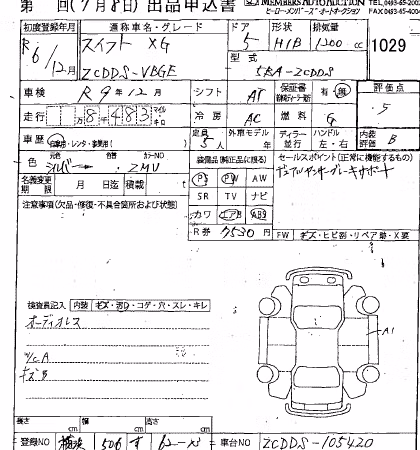 第 回(7月8日)出品申込書
MEMBERS AUTO AUCTION
ヒーローメンバーズ・オートオークション
TEL(0493-65-200
FAX(0493-65-400
初度登録年月 通称車名・グレード ドア 形状 排気量 1029
R6/12月 スイフト XG 5 H/B 1200 cc
型式
ZCDDS-VBGE 5BA-ZCDDS
車検 R9年12月 シフト AT 保証書 有・無 評価点
走行 18483 マイル キロ 冷房 AC 燃料 G 5
車歴 自家用・レンタ・事業用 定員 5人 外車モデル 年 ディーラー 並行 ハンドル 左・右 内装評価 B
色 元色 シルバー 色替 カラーNO ZMV 装備品(純正品に限る) セールスポイント(正常に機能するもの)
名義変更期限 月 日迄 積載 PS PW AW デュアルセンサーブレーキサポート
注意事項(欠品・修復・不具合箇所および状態) SR TV ナビ
カワ エアB ABS
R券 7530円 FW キズ・ヒビ割・リペア跡・X要
検査員記入 内装 キズ・汚れ・コゲ・穴・スレ・キレ
オーディオレス
A1
W/C A
キズ B
長さ cm 幅 cm 高さ cm
登録NO 横浜 506 す 62-×3 車台NO ZCDDS-105420